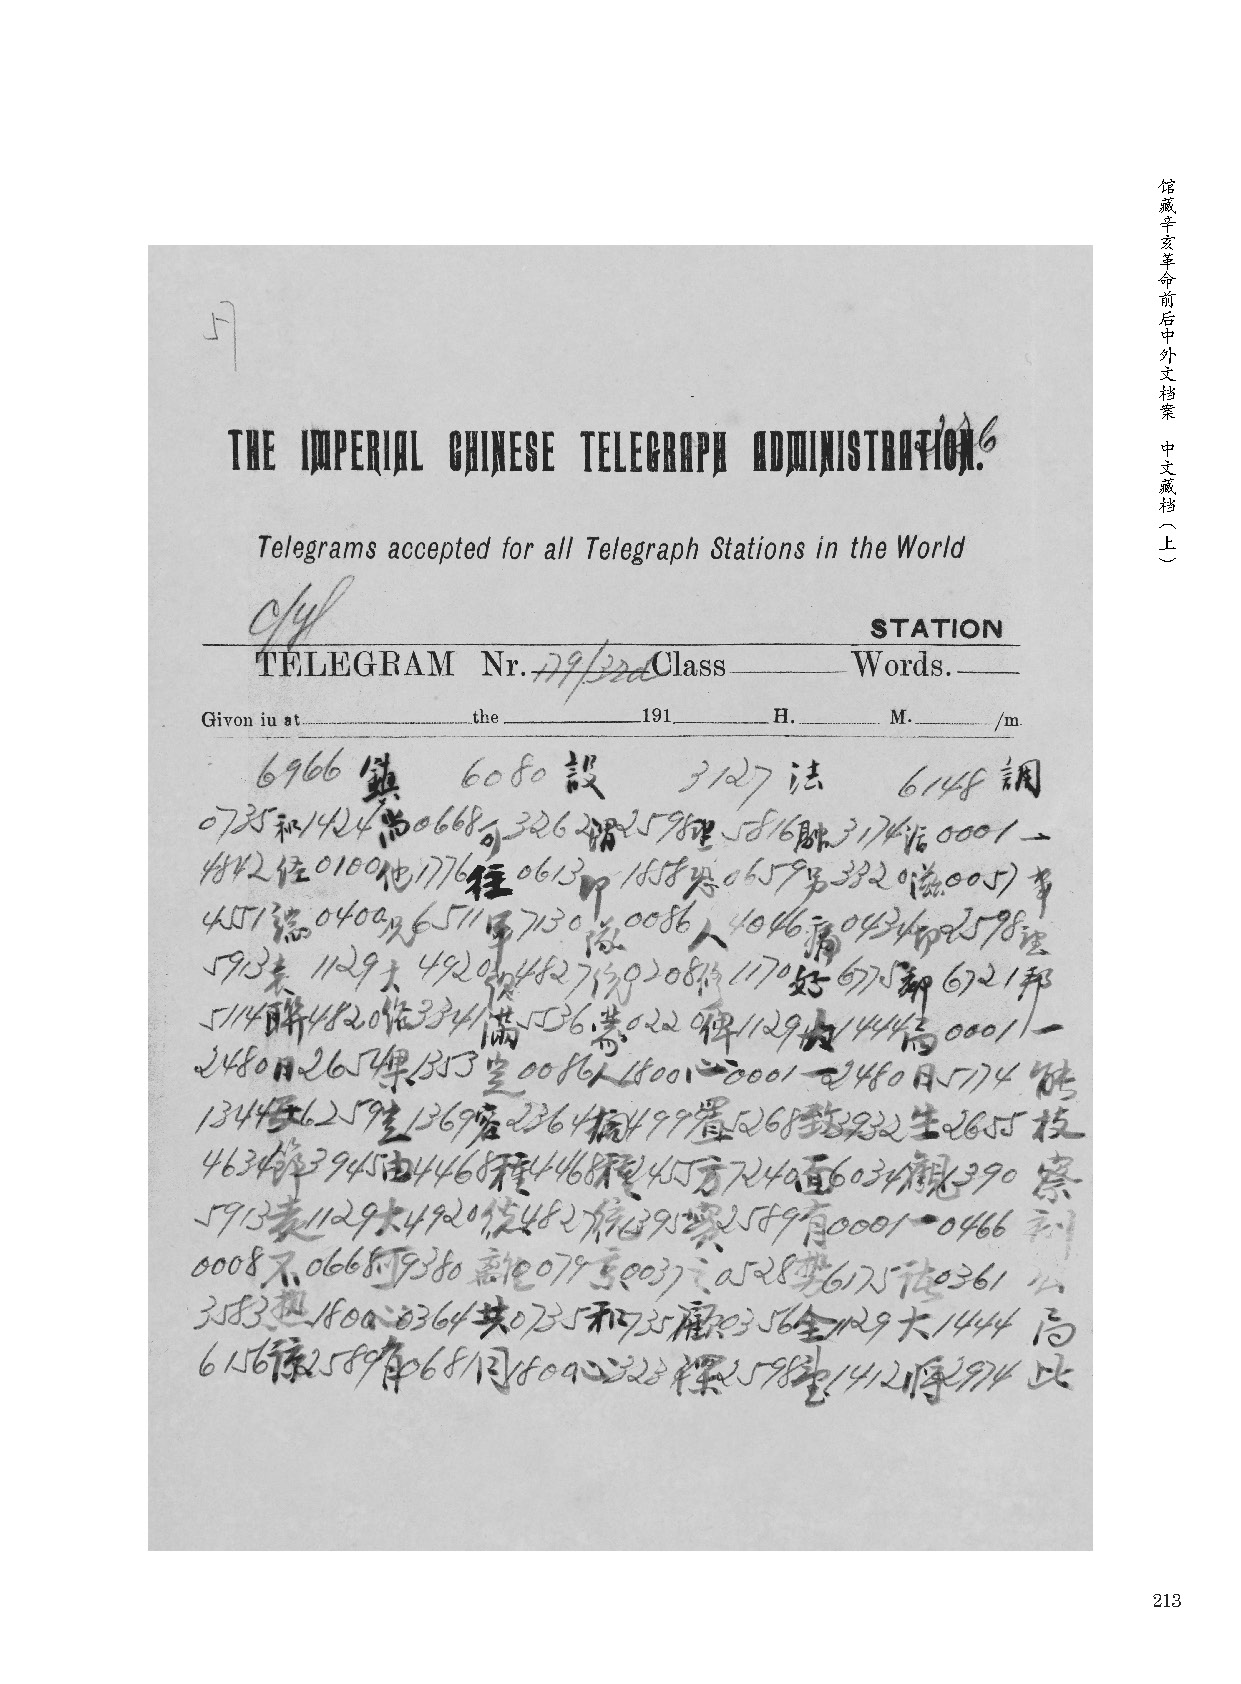 馆藏辛亥革命前后中外文档案 中文藏档（上）
THE IMPERIAL CHINESE TELEGRAPH ADMINISTRATION.
Telegrams accepted for all Telegraph Stations in the World
STATION
TELEGRAM Nr. 179/3rd Class Words.
Givon iu at the 191 H. M. /m
6966 鎮 6080 設 3127 法 6148 調
0735 和 1424 尚 0668 可 3262 謂 2598 望 5816 融 3174 活 0001 一
4842 經 0100 他 1776 往 0613 即 1858 恐 0659 另 3320 滋 0057 事
4551 端 0400 況 6511 軍 7130 隊 0086 人 4046 病 0434 即 2598 望
5913 袁 1129 大 4920 總 4827 統 0208 修 1170 好 6775 鄰 6721 邦
5114 聯 4820 絡 3341 滿 5536 蒙 0220 俾 1129 大 1444 局 0001 一
2480 日 2654 果 1353 定 0086 人 1800 心 0001 一 2480 日 5174 能
1344 安 6259 豈 1369 容 2364 擱 4999 置 5268 致 3932 生 2655 枝
4634 節 3945 由 4468 種 4468 種 2455 方 7240 面 6034 觀 1390 察
5913 袁 1129 大 4920 總 4827 統 1395 實 2589 有 0001 一 0466 刻
0008 不 0668 可 9380 離 0079 京 0037 之 0528 勢 6175 諸 0361 公
3583 熱 1800 心 0364 共 0735 和 7357 顧 0356 全 1129 大 1444 局
6156 諒 2589 有 0681 同 1800 心 3234 深 2598 望 1412 將 2974 此
213